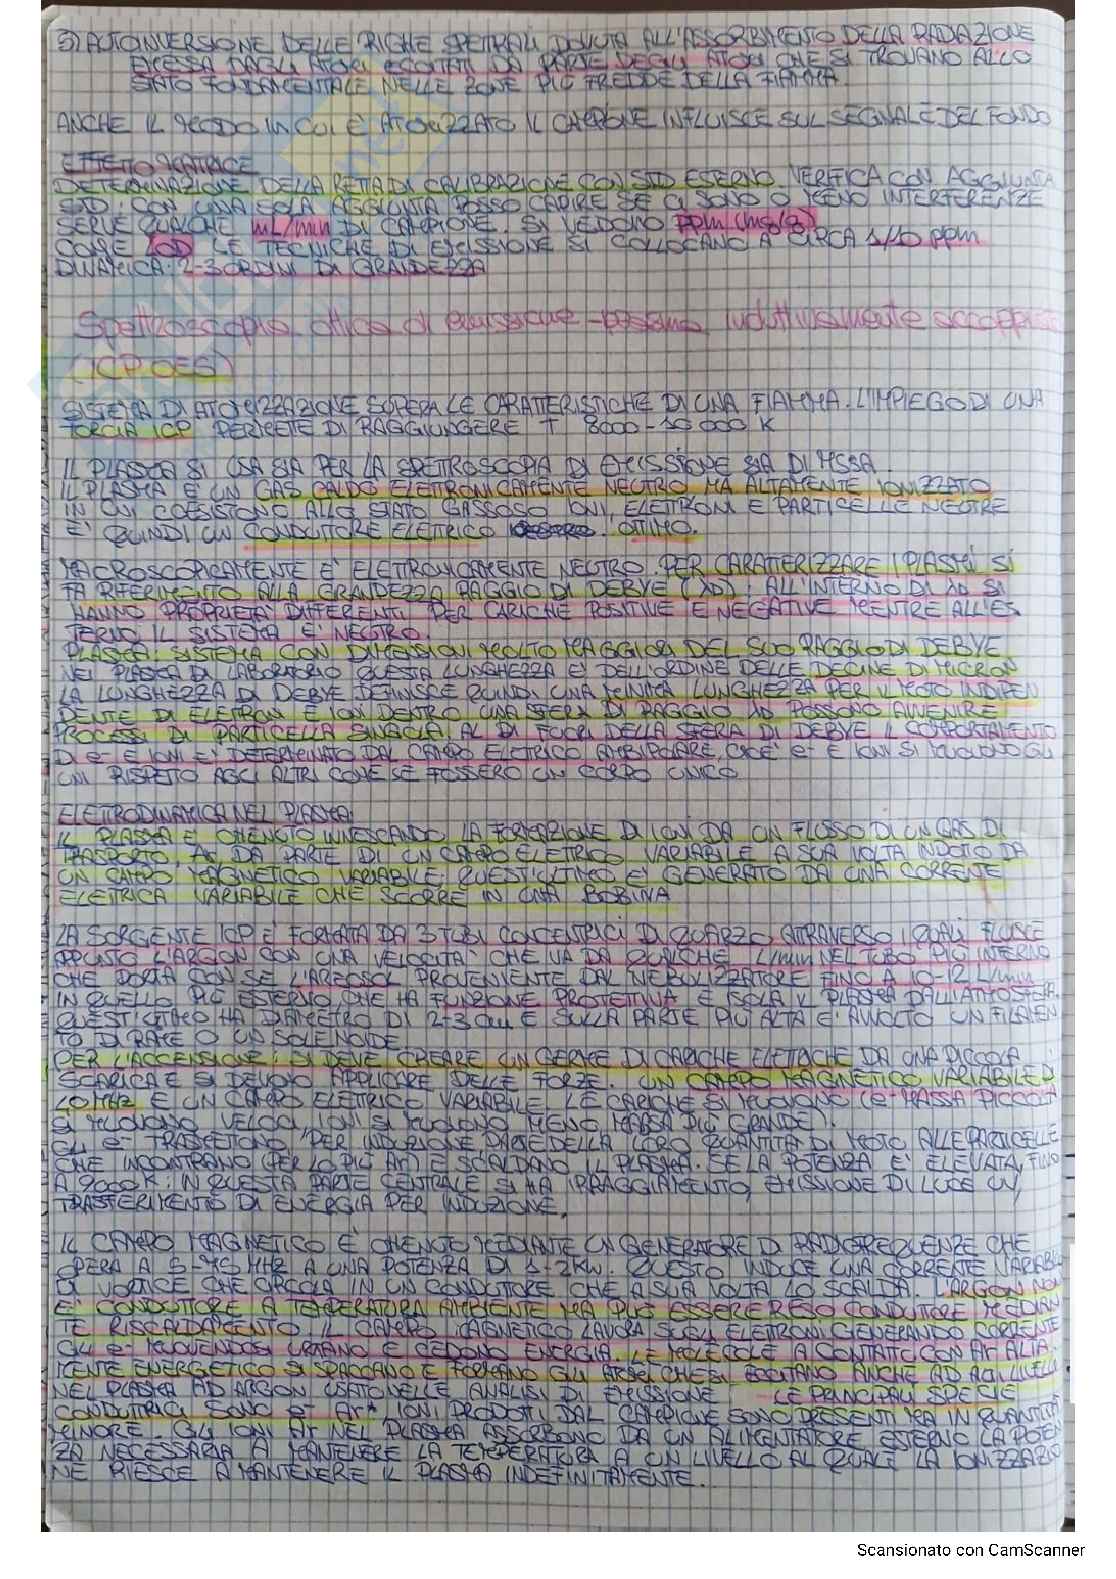 3) AUTOINVERSIONE DELLE RIGHE SPETTRALI DOVUTA ALL'ASSORBIMENTO DELLA RADIAZIONE
EMESSA DAGLI ATOMI ECCITATI DA PARTE DEGLI ATOMI CHE SI TROVANO ALLO
STATO FONDAMENTALE NELLE ZONE PIÙ FREDDE DELLA FIAMMA.
ANCHE IL MODO IN CUI E' ATOMIZZATO IL CAMPIONE INFLUISCE SUL SEGNALE DEL FONDO
EFFETTO MATRICE
DETERMINAZIONE DELLA RETTA DI CALIBRAZIONE CON STD ESTERNO. VERIFICA CON AGGIUNTA
STD: CON UNA SOLA AGGIUNTA POSSO CAPIRE SE CI SONO O MENO INTERFERENZE
SERVE QUALCHE mL/min DI CAMPIONE. SI VEDONO ppm (mg/g)
COME LOD LE TECNICHE DI EMISSIONE SI COLLOCANO A CIRCA 1/10 ppm
DINAMICA: 2-3 ORDINI DI GRANDEZZA
Spettroscopia ottica di emissione - plasma induttivamente accoppiato
(ICP OES)
SISTEMA DI ATOMIZZAZIONE SUPERA LE CARATTERISTICHE DI UNA FIAMMA. L'IMPIEGO DI UNA
TORCIA ICP PERMETE DI RAGGIUNGERE T 8000-10000 K
IL PLASMA SI USA SIA PER LA SPETTROSCOPIA DI EMISSIONE SIA DI MASSA.
IL PLASMA E' UN GAS CALDO ELETTRONICAMENTE NEUTRO MA ALTAMENTE IONIZZATO
IN CUI COESISTONO ALLO STATO GASSOSO IONI, ELETTRONI E PARTICELLE NEUTRE
E' QUINDI UN CONDUTTORE ELETTRICO OTTIMO.
MACROSCOPICAMENTE E' ELETTRONICAMENTE NEUTRO. PER CARATTERIZZARE I PLASMI SI
FA RIFERIMENTO ALLA GRANDEZZA RAGGIO DI DEBYE (λD): ALL'INTERNO DI λD SI
HANNO PROPRIETA' DIFFERENTI PER CARICHE POSITIVE E NEGATIVE MENTRE ALL'ES
TERNO IL SISTEMA E' NEUTRO.
PLASMA: SISTEMA CON DIMENSIONI MOLTO MAGGIORI DEL SUO RAGGIO DI DEBYE
NEI PLASMA DI LABORATORIO QUESTA LUNGHEZZA E' DELL'ORDINE DELLE DECINE DI MICRON
LA LUNGHEZZA DI DEBYE DEFINISCE QUINDI UNA MINIMA LUNGHEZZA PER IL MOTO INDIPEN
DENTE DI ELETTRONI E IONI DENTRO UNA SFERA DI RAGGIO λD POSSONO AVVENIRE
PROCESSI DI PARTICELLA SINGOLA. AL DI FUORI DELLA SFERA DI DEBYE IL COMPORTAMENTO
DI e- E IONI E' DETERMINATO DAL CAMPO ELETTRICO AMBIPOLARE, CIOE' e- E IONI SI MUOVONO GLI
UNI RISPETTO AGLI ALTRI COME SE FOSSERO UN CORPO UNICO
ELETTRODINAMICA NEL PLASMA:
IL PLASMA E' OTTENUTO INNESCANDO LA FORMAZIONE DI IONI DA UN FLUSSO DI UN GAS DI
TRASPORTO, Ar, DA PARTE DI UN CAMPO ELETTRICO VARIABILE A SUA VOLTA INDOTTO DA
UN CAMPO MAGNETICO VARIABILE; QUEST'ULTIMO E' GENERATO DA UNA CORRENTE
ELETTRICA VARIABILE CHE SCORRE IN UNA BOBINA
LA SORGENTE ICP E' FORMATA DA 3 TUBI CONCENTRICI DI QUARZO ATTRAVERSO I QUALI FLUISCE
APPUNTO L'ARGON CON UNA VELOCITA' CHE VA DA QUALCHE L/min NEL TUBO PIÙ INTERNO
CHE PORTA CON SE L'AREOSOL PROVENIENTE DAL NEBULIZZATORE FINO A 10-12 L/min
IN QUELLO PIÙ ESTERNO CHE HA FUNZIONE PROTETTIVA E ISOLA IL PLASMA DALL'ATMOSFERA.
QUEST'ULTIMO HA DIAMETRO DI 2÷3 cm E SULLA PARTE PIÙ ALTA E' AVVOLTO UN FILAMEN
TO DI RAME O UN SOLENOIDE
PER L'ACCENSIONE: SI DEVE CREARE UN GERME DI CARICHE ELETTRICHE DA UNA PICCOLA
SCARICA E SI DEVONO APPLICARE DELLE FORZE. UN CAMPO MAGNETICO VARIABILE DI
40 MHz E UN CAMPO ELETTRICO VARIABILE. LE CARICHE SI MUOVONO (e- MASSA PICCOLA
SI MUOVONO VELOCI, IONI SI MUOVONO MENO MASSA PIÙ GRANDE).
GLI e- TRASMETTONO PER INDUZIONE PARTE DELLA LORO QUANTITÀ DI MOTO ALLE PARTICELLE
CHE INCONTRANO (PER LO PIÙ Ar) E SCALDANO IL PLASMA. SE LA POTENZA E' ELEVATA, FINO
A 9000 K: IN QUESTA PARTE CENTRALE SI HA IRRAGGIAMENTO, EMISSIONE DI LUCE UV,
TRASFERIMENTO DI ENERGIA PER INDUZIONE.
IL CAMPO MAGNETICO E' OTTENUTO MEDIANTE UN GENERATORE DI RADIOFREQUENZE CHE
OPERA A 5-40 MHz A UNA POTENZA DI 1-2KW. QUESTO INDUCE UNA CORRENTE VARIABILE
DI VORTICE CHE CIRCOLA IN UN CONDUTTORE CHE A SUA VOLTA LO SCALDA. L'ARGON NON
E' CONDUTTORE A TEMPERATURA AMBIENTE MA PUO' ESSERE RESO CONDUTTORE MEDIAN
TE RISCALDAMENTO. IL CAMPO MAGNETICO LAVORA SUGLI ELETTRONI GENERANDO CORRENTE
GLI e- MUOVENDOSI URTANO E CEDONO ENERGIA. LE MOLECOLE A CONTATTO CON Ar ALTA
MENTE ENERGETICO SI SPACCANO E FORMANO GLI ATOMI CHE SI ECCITANO ANCHE AD ALTI LIVELLI
NEL PLASMA AD ARGON USATO NELLE ANALISI DI EMISSIONE LE PRINCIPALI SPECIE
CONDUTTRICI SONO e- Ar+ IONI PRODOTTI DAL CAMPIONE SONO PRESENTI MA IN QUANTITÀ
MINORE. GLI IONI Ar NEL PLASMA ASSORBONO DA UN ALIMENTATORE ESTERNO LA POTEN
ZA NECESSARIA A MANTENERE LA TEMPERATURA A UN LIVELLO AL QUALE LA IONIZZAZIO
NE RIESCE A MANTENERE IL PLASMA INDEFINITAMENTE.
Scansionato con CamScanner